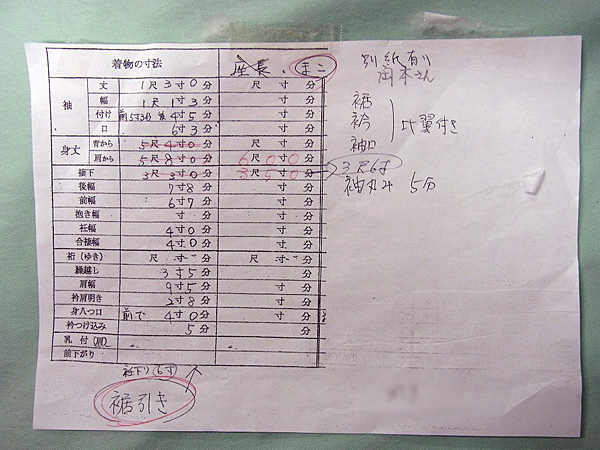 着物の寸法 座長、まこ
袖 丈 1尺3寸0分 尺 寸 分
幅 1尺1寸3分 寸 分
付け 前5寸3分 4寸5分 寸 分
口 6寸3分 寸 分
身丈 背から 5尺4寸0分 尺 寸 分
肩から 5尺8寸0分 6尺0寸0分
褄下 3尺3寸0分 3尺5寸0分
後幅 7寸8分 寸 分
前幅 6寸7分 寸 分
抱き幅 寸 分 寸 分
衽幅 4寸0分 寸 分
合褄幅 4寸0分 寸 分
裄(ゆき) 尺 寸 分 尺 寸 分
繰越し 3寸5分 分
肩幅 9寸5分 寸 分
衿肩明き 2寸8分 寸 分
身八つ口 前で 4寸0分 寸 分
衿つけ込み 5分 分
乳付(肩)
前下がり
衽下り(6寸)
裾引き
別紙有り
岡本さん
裾
衿 比翼付き
袖口
3尺6寸
袖丸み 5分